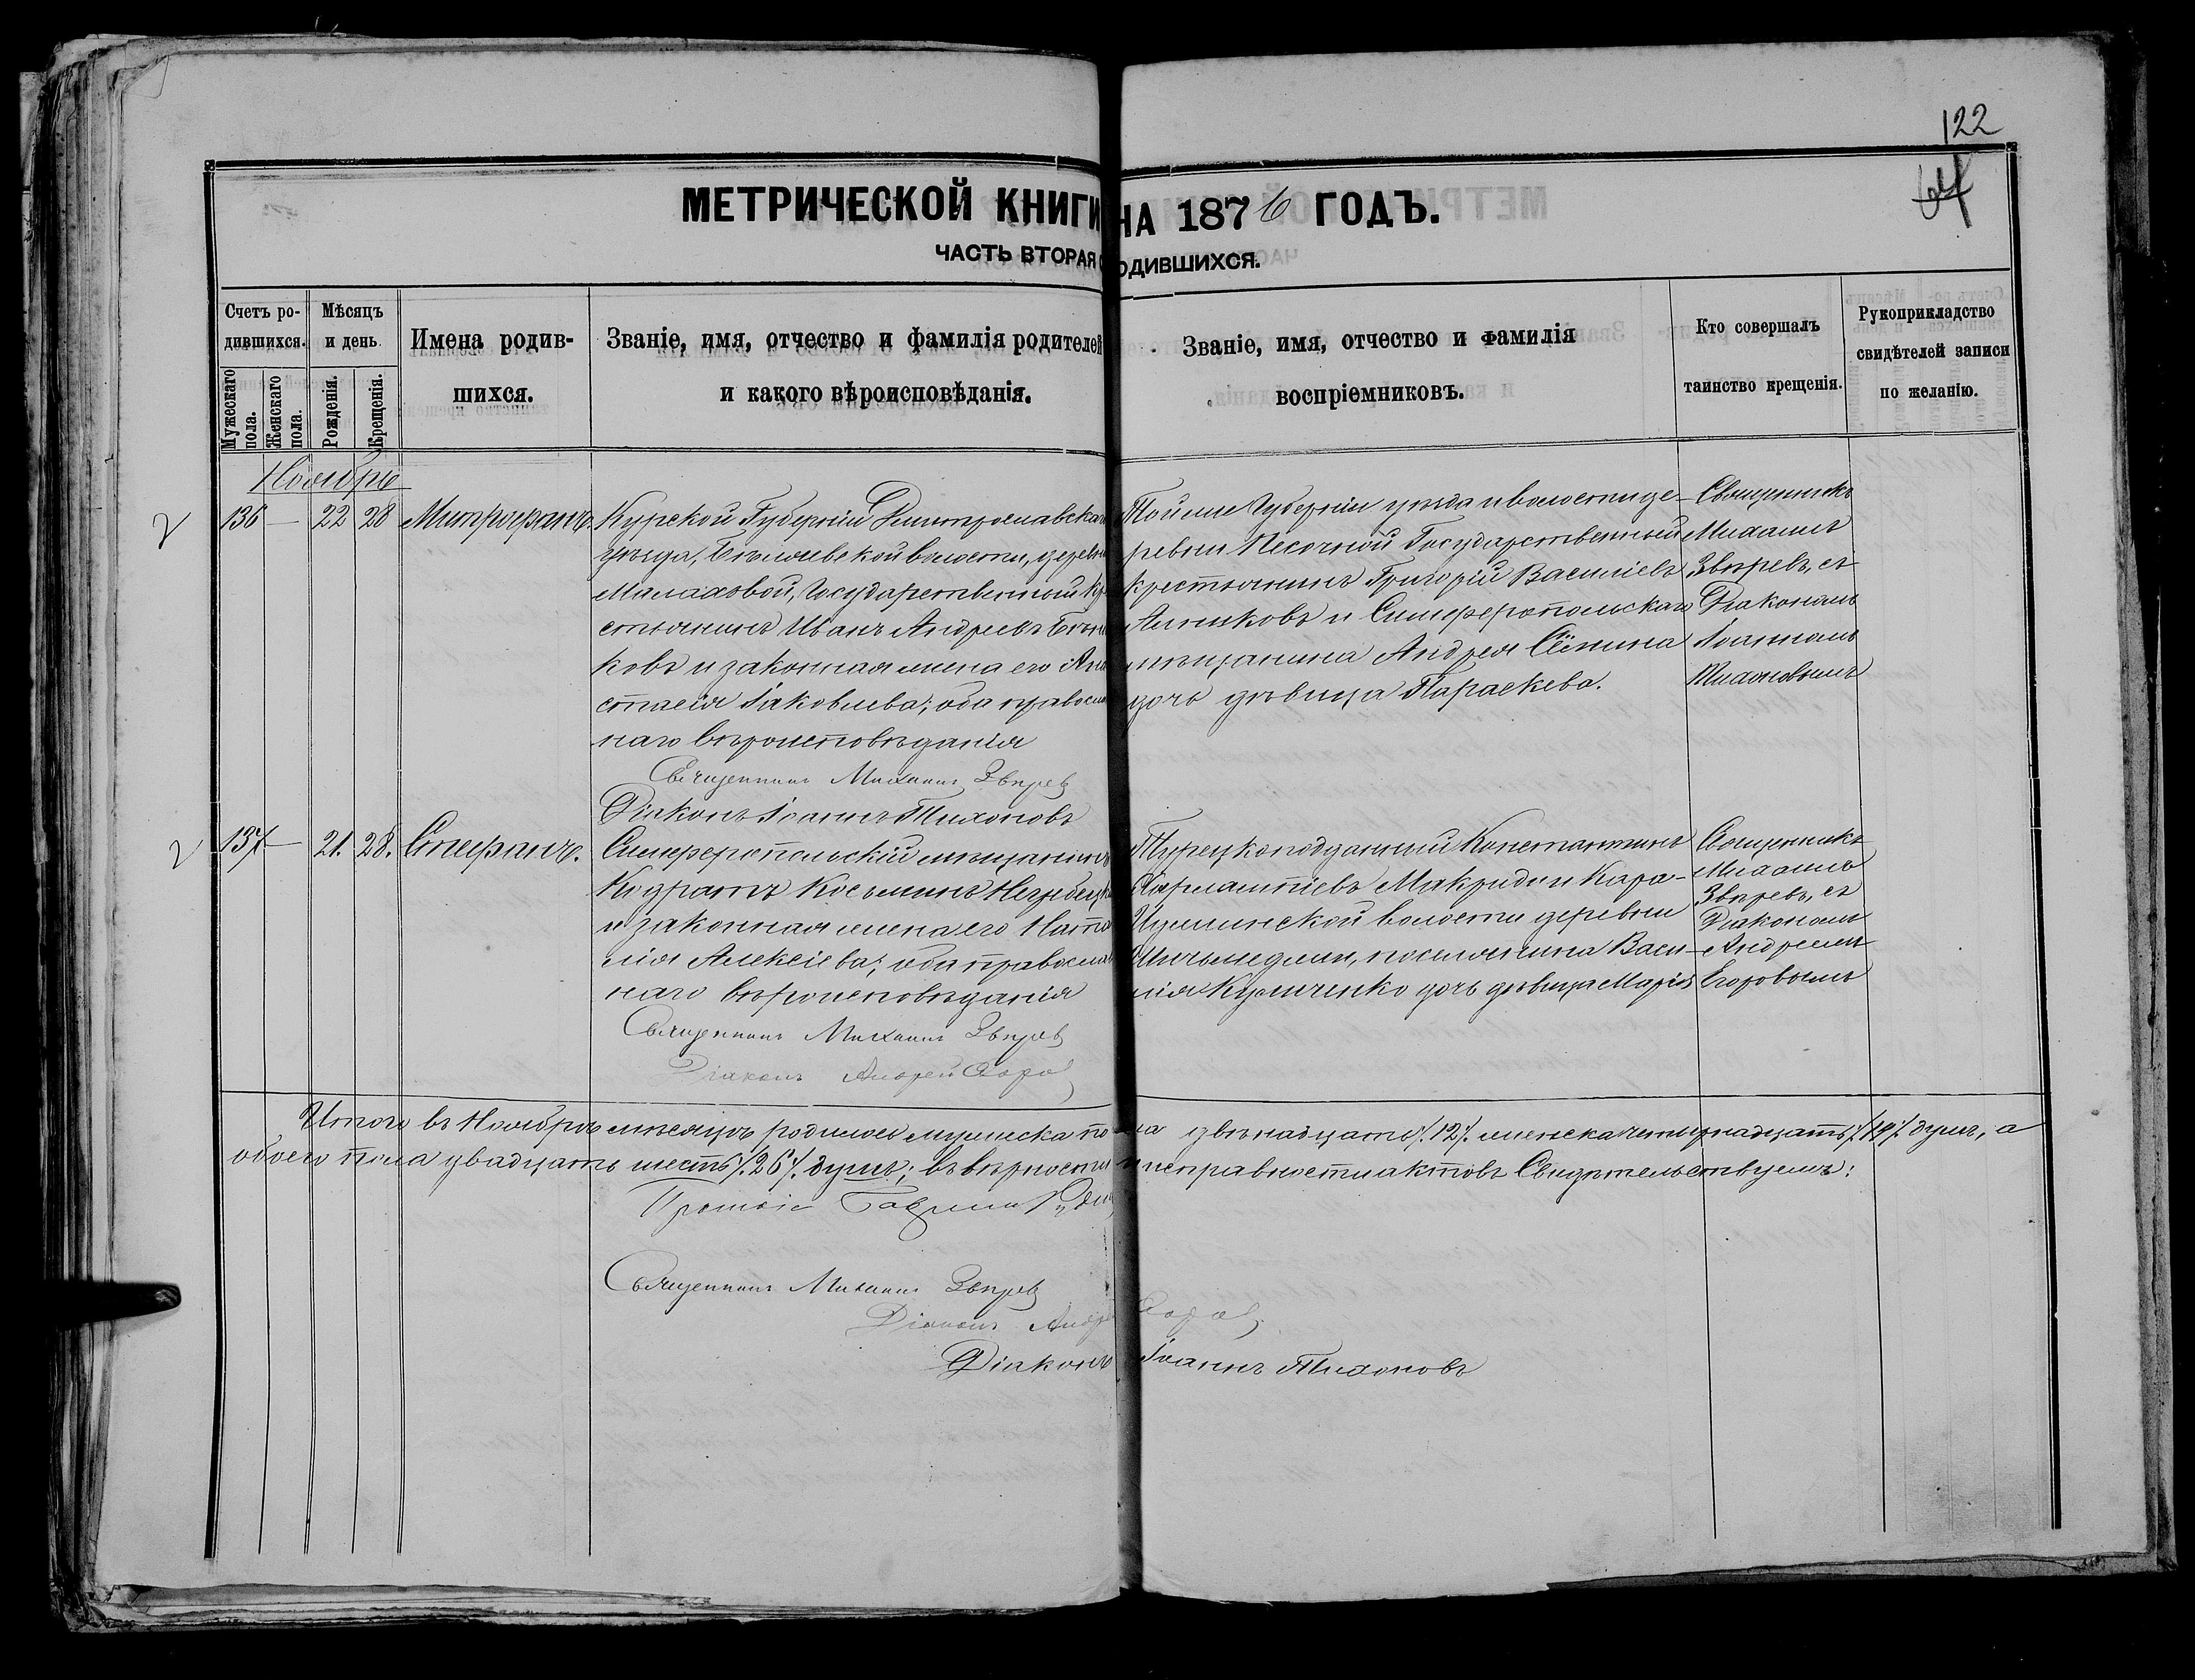 122
64
МЕТРИЧЕСКОЙ КНИГИ НА 1876 ГОДЪ.
ЧАСТЬ ВТОРАЯ ОДИВШИХСЯ.
Счетъ ро-
дившихся.
Мужескаго пола.
Женскаго пола.
Мѣсяцъ
и день.
Рожденія.
Крещенія.
Имена родив-
шихся.
Званіе, имя, отчество и фамилія родителей
и какого вѣроисповѣданія.
Званіе, имя, отчество и фамилія
воспріемниковъ.
Кто совершалъ
таинство крещенія.
Рукоприкладство
свидѣтелей записи
по желанію.
Ноябрь
136 — 22 28 Митрофанъ.
Курской Губерніи Дмитрославска
уѣзда, волости, дерев
Малаховой, Государственный кр
стьянинъ Иванъ Андреевъ
ковъ и законная жена его Ана
стасія Іаковлева; оба правосла
наго вѣроисповѣданія
Священникъ Михаилъ Звѣревъ
Діаконъ Іоаннъ Тихоновъ
Тойже Губерніи уѣзда и волости де-
ревни Песочной Государственный
крестьянинъ Григорій Василіевъ
и Симферопольскаго
мѣщанина Андрея
дочь дѣвица Параскева.
Священникъ
Михаилъ
Звѣревъ, съ
Діакономъ
Іоанномъ
Тихоновымъ
137 — 21. 28. Стефанъ.
Симферопольскій мѣщанинъ
Кодратъ Косьминъ
и законная жена его Ната
лія Алексіева; оба правосла
наго вѣроисповѣданія
Священникъ Михаилъ Звѣревъ
Діаконъ Андрей
Турецкоподданный Константинъ
Макриди и Кара-
волости деревни
поселянина Васи-
лія дочь дѣвица Марія
Священникъ
Михаилъ
Звѣревъ, съ
Діакономъ
Андреемъ
Егоровымъ
Итого въ Ноябрѣ мѣсяцѣ родилось мужеска по ла двѣнадцать /12/. женска четырнадцать /14/ душъ, а
обоего пола двадцать шесть /26/. душъ; въ вѣрности и исправности актовъ Свидѣтельствуемъ:
Протоіе Гавріилъ
Священникъ Михаилъ Звѣревъ
Діаконъ Андре
Діаконъ Іоаннъ Тихоновъ